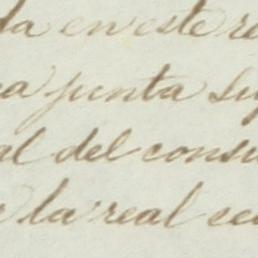 da en este re
a junta Su
al del consu
la real ce